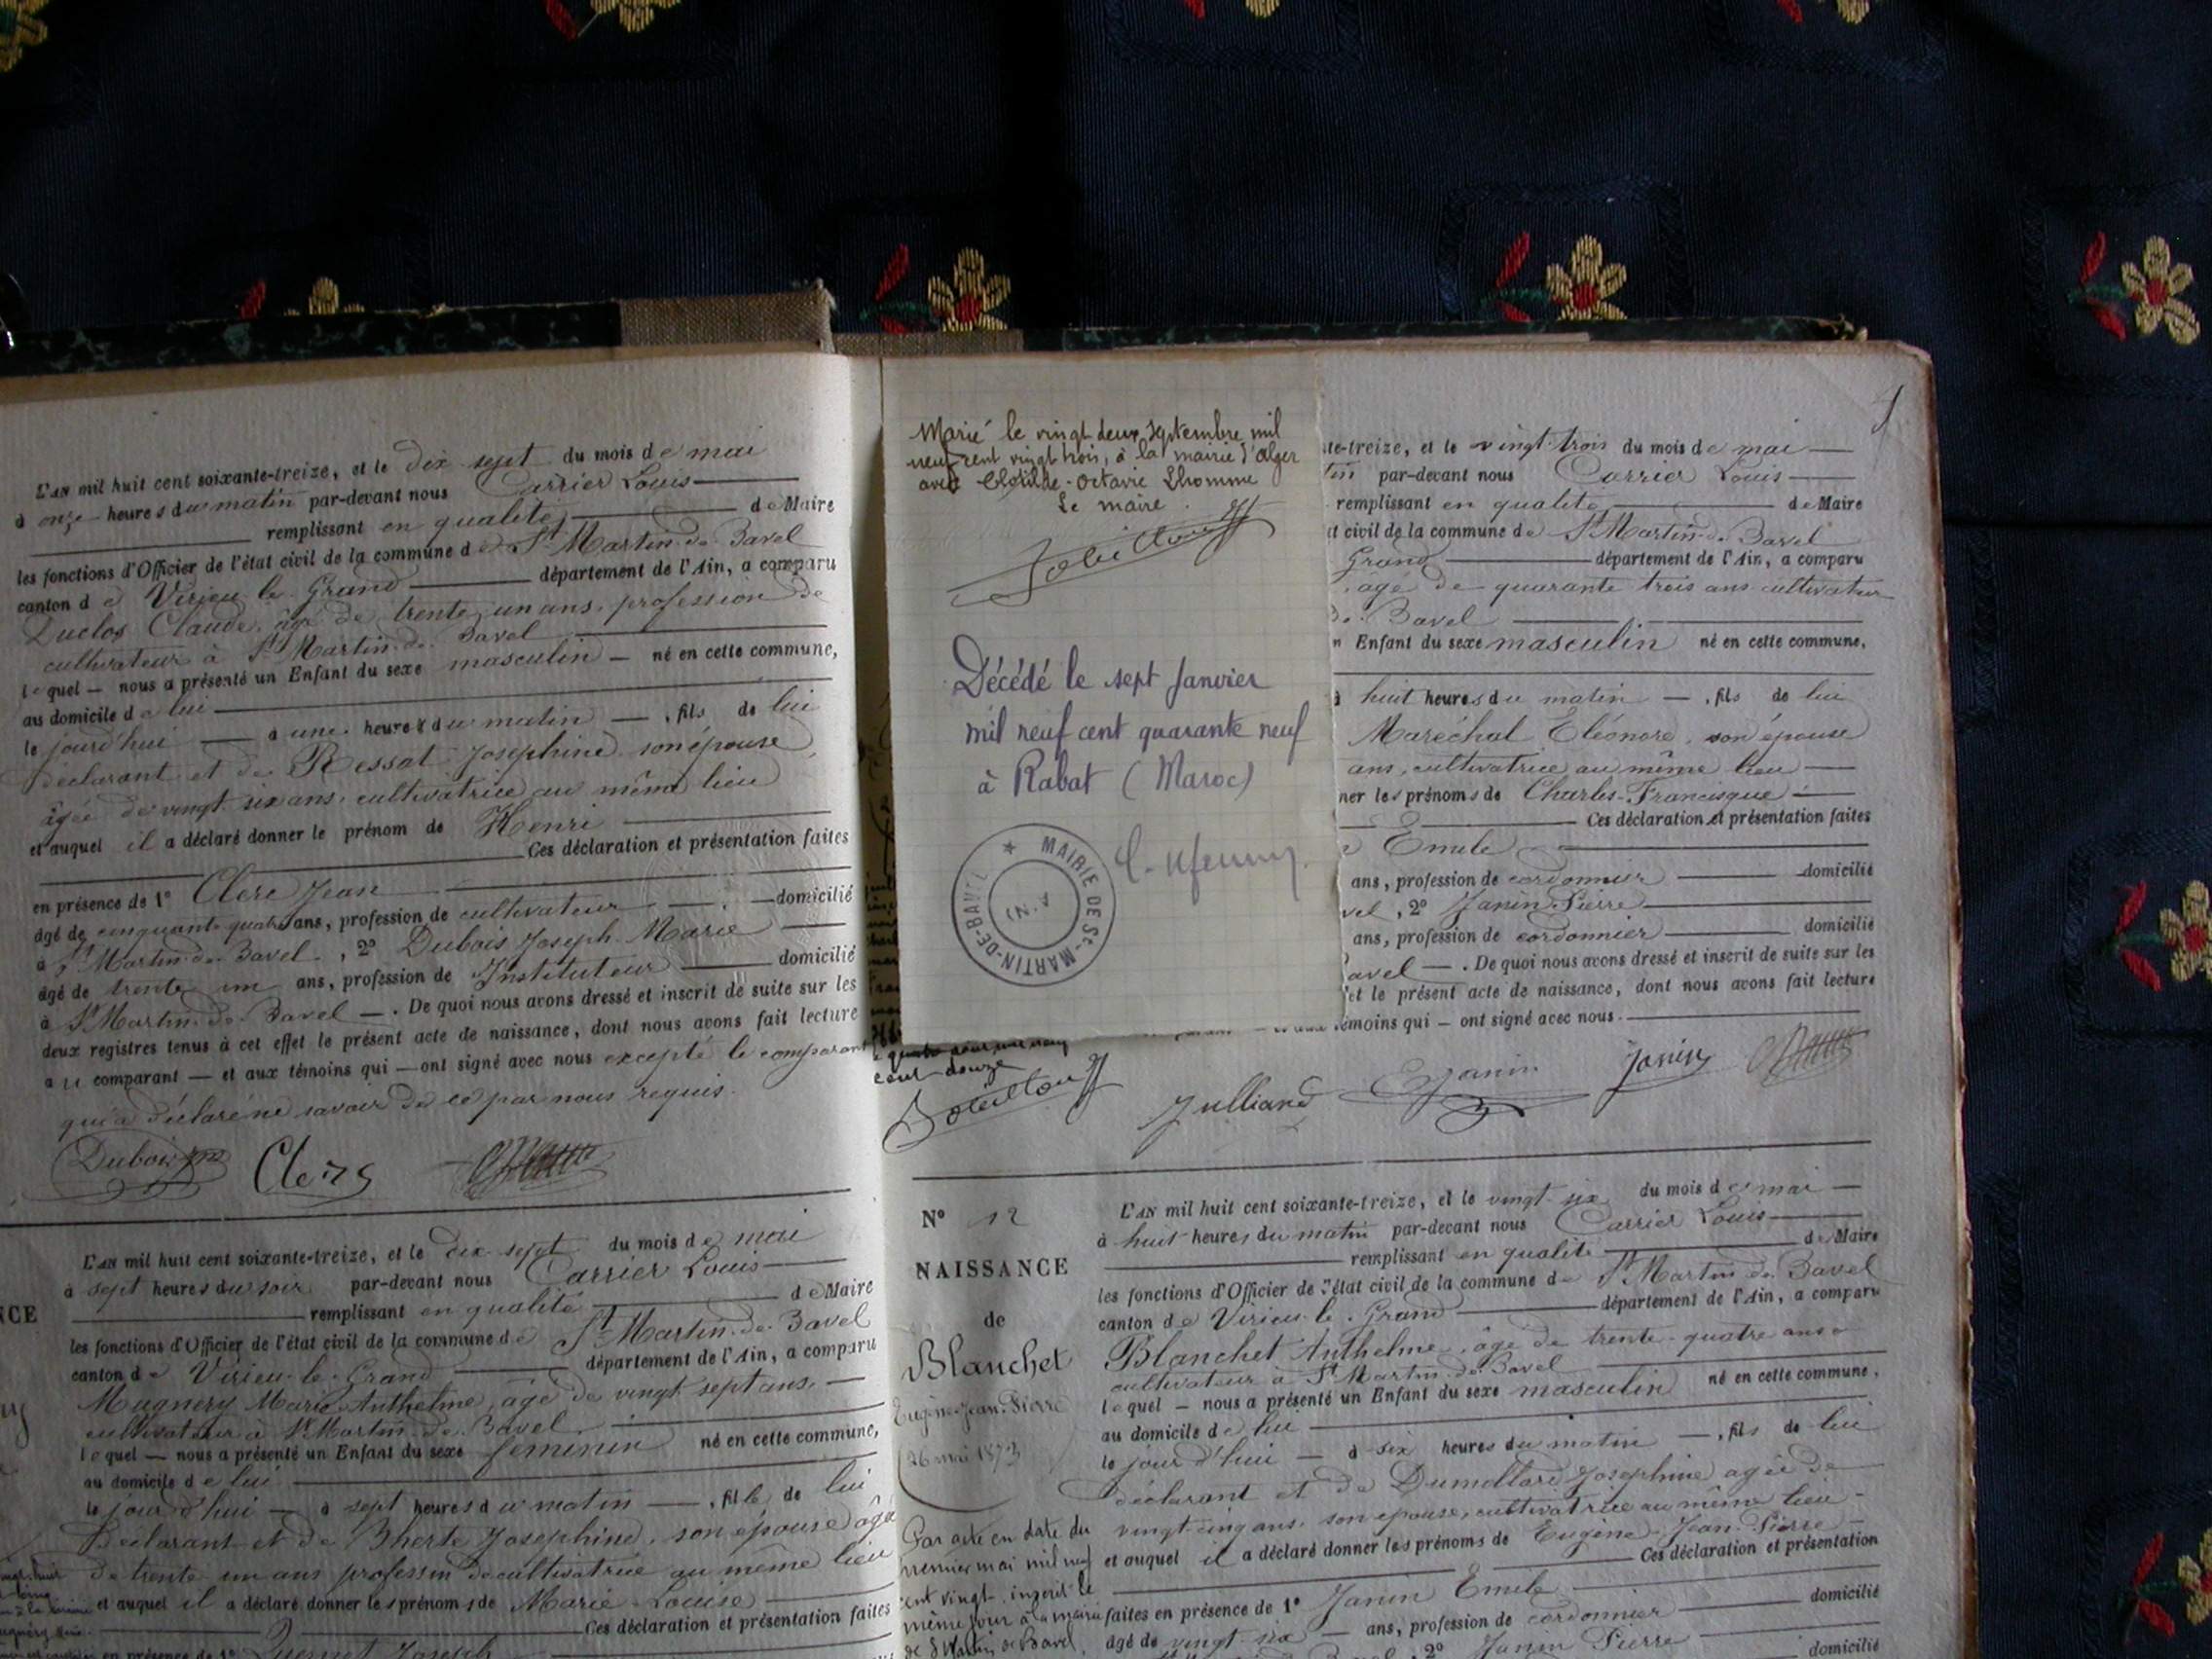 L'AN mil huit cent soixante-treize, et le dix sept du mois de mai
à onze heures du matin par-devant nous Carrier Louis
remplissant en qualité de Maire
les fonctions d'Officier de l'état civil de la commune de St Martin-de-Bavel
canton de Virieu-le-Grand département de l'Ain, a comparu
Duclos Claude, âgé de trente un ans, profession de
cultivateur à St Martin-de-Bavel
lequel — nous a présenté un Enfant du sexe masculin — né en cette commune,
au domicile de lui
le jourd'hui à une heure du matin — , fils de lui
déclarant et de Ressat Josephine son épouse
âgée de vingt six ans, cultivatrice au même lieu
et auquel il a déclaré donner le prénom de Henri
Ces déclaration et présentation faites
en présence de 1° Clerc Jean
âgé de cinquante quatre ans, profession de cultivateur domicilié
à St Martin-de-Bavel , 2° Dubois Joseph Marie
âgé de trente un ans, profession de Instituteur domicilié
à St Martin-de-Bavel — . De quoi nous avons dressé et inscrit de suite sur les
deux registres tenus à cet effet le présent acte de naissance, dont nous avons fait lecture
au comparant — et aux témoins qui — ont signé avec nous excepté le comparant
qui a déclaré ne savoir de ce par nous requis.
Dubois Clerc
L'AN mil huit cent soixante-treize, et le dix sept du mois de mai
à sept heures du soir par-devant nous Carrier Louis
remplissant en qualité de Maire
les fonctions d'Officier de l'état civil de la commune de St Martin-de-Bavel
canton de Virieu-le-Grand département de l'Ain, a comparu
Mugnery Marie Anthelme, âgé de vingt sept ans,
cultivateur à St Martin-de-Bavel
lequel — nous a présenté un Enfant du sexe féminin né en cette commune,
au domicile de lui
le jourd'hui — à sept heures du matin — , fille de lui
déclarant et de Josephine, son épouse âgée
de trente un ans profession de cultivatrice au même lieu
et auquel il a déclaré donner les prénoms de Marie Louise
Ces déclaration et présentation faites
en présence de 1° Joseph
Marié le vingt deux septembre mil
neuf cent vingt trois, à la mairie d'Alger
avec Clotilde-Octavie Lhomme
Le maire
Décédé le sept Janvier
mil neuf cent quarante neuf
à Rabat (Maroc)
MAIRIE DE St-MARTIN-DE-BAVEL
AIN
te-treize, et le vingt-trois du mois de mai
tin par-devant nous Carrier Louis
remplissant en qualité de Maire
t civil de la commune de St Martin-de-Bavel
Grand département de l'Ain, a comparu
, agé de quarante trois ans cultivateur
de Bavel
n Enfant du sexe masculin né en cette commune,
à huit heures du matin — , fils de lui
Maréchal Eléonore, son épouse
ans, cultivatrice au même lieu
ner les prénoms de Charles-Francisque
Ces déclaration et présentation faites
Emile
ans, profession de cordonnier domicilié
vel , 2° Janin Pierre
ans, profession de cordonnier domicilié
avel — . De quoi nous avons dressé et inscrit de suite sur les
et le présent acte de naissance, dont nous avons fait lecture
témoins qui — ont signé avec nous.
cent douze
Julliand E Janin Janin
N° 12
NAISSANCE
de
Blanchet
Eugène-Jean-Pierre
26 mai 1873
Par acte en date du
premier mai mil neuf
cent vingt, inscrit le
même jour à la mairie
de St Martin de Bavel,
L'AN mil huit cent soixante-treize, et le vingt-six du mois de mai
à huit heures du matin par-devant nous Carrier Louis
remplissant en qualité de Maire
les fonctions d'Officier de l'état civil de la commune de St Martin-de-Bavel
canton de Virieu-le-Grand département de l'Ain, a comparu
Blanchet Anthelme, âgé de trente-quatre ans
cultivateur à St Martin-de-Bavel
lequel — nous a présenté un Enfant du sexe masculin né en cette commune,
au domicile de lui
le jourd'hui — à six heures du matin — , fils de lui
déclarant et de Dumollard Josephine agée de
vingt cinq ans, son épouse, cultivatrice au même lieu
et auquel il a déclaré donner les prénoms de Eugène-Jean-Pierre
Ces déclaration et présentation
faites en présence de 1° Janin Emile
âgé de vingt-six ans, profession de cordonnier domicilié
2° Janin Pierre
domicilié